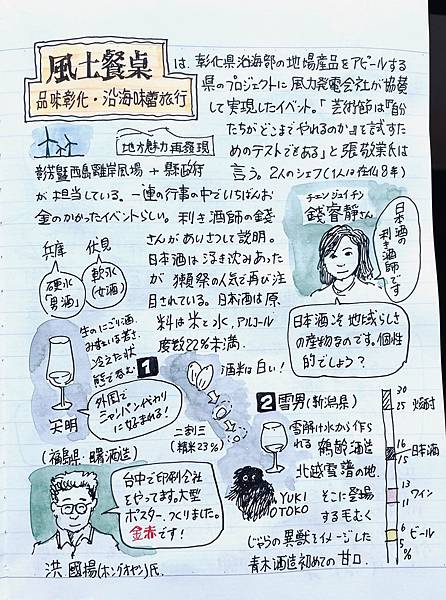 風土餐桌
品味彰化・沿海味蕾旅行
は、彰化県沿海部の地場産品をアピールする
県のプロジェクトに風力発電会社が協賛
して実現したイベント。「芸術節は『自分
たちがどこまでやれるのか』を試すため
のテストでもある」と張敬業氏は
言う。2人のシェフ(1人は在仏8年)
地方魅力再發現
彰芳暨西島離岸風場 + 縣政府
が担当している。一連の行事の中でいちばんお
金のかかったイベントらしい。利き酒師の錢
さんがあいさつして説明。
日本酒は浮き沈みあった
が獺祭の人気で再び注
目されている。日本酒は原
料は米と水、アルコール
度数22%未満。
チェンジュイチン
錢睿靜さん
日本酒の
利き酒師です
日本酒こそ地域らしさ
の産物なのです。個性
的でしょう?
兵庫
伏見
硬水
「男酒」
軟水
(女酒)
生のにごり酒
みずみずしい若さ
冷えた状
態で呑む
1
外国で
シャンパン代わり
に好まれる!
天明
(福島県・曙酒造)
酒米は白い!
二割三
(精米23%)
2 雪男(新潟県)
雪解け水から作ら
れる 鶴齢酒造
北越雪譜の地。
そこに登場
する毛むく
じゃらの異獣をイメージした
青木酒造初めての甘口。
YUKI
OTOKO
台中で印刷会社
をやってます。大型
ポスター、つくりました。
金赤です!
洪國揚(ホングオヤン)氏
30
25
焼酎
16
15
日本酒
13
11
ワイン
6
5
ビール
%